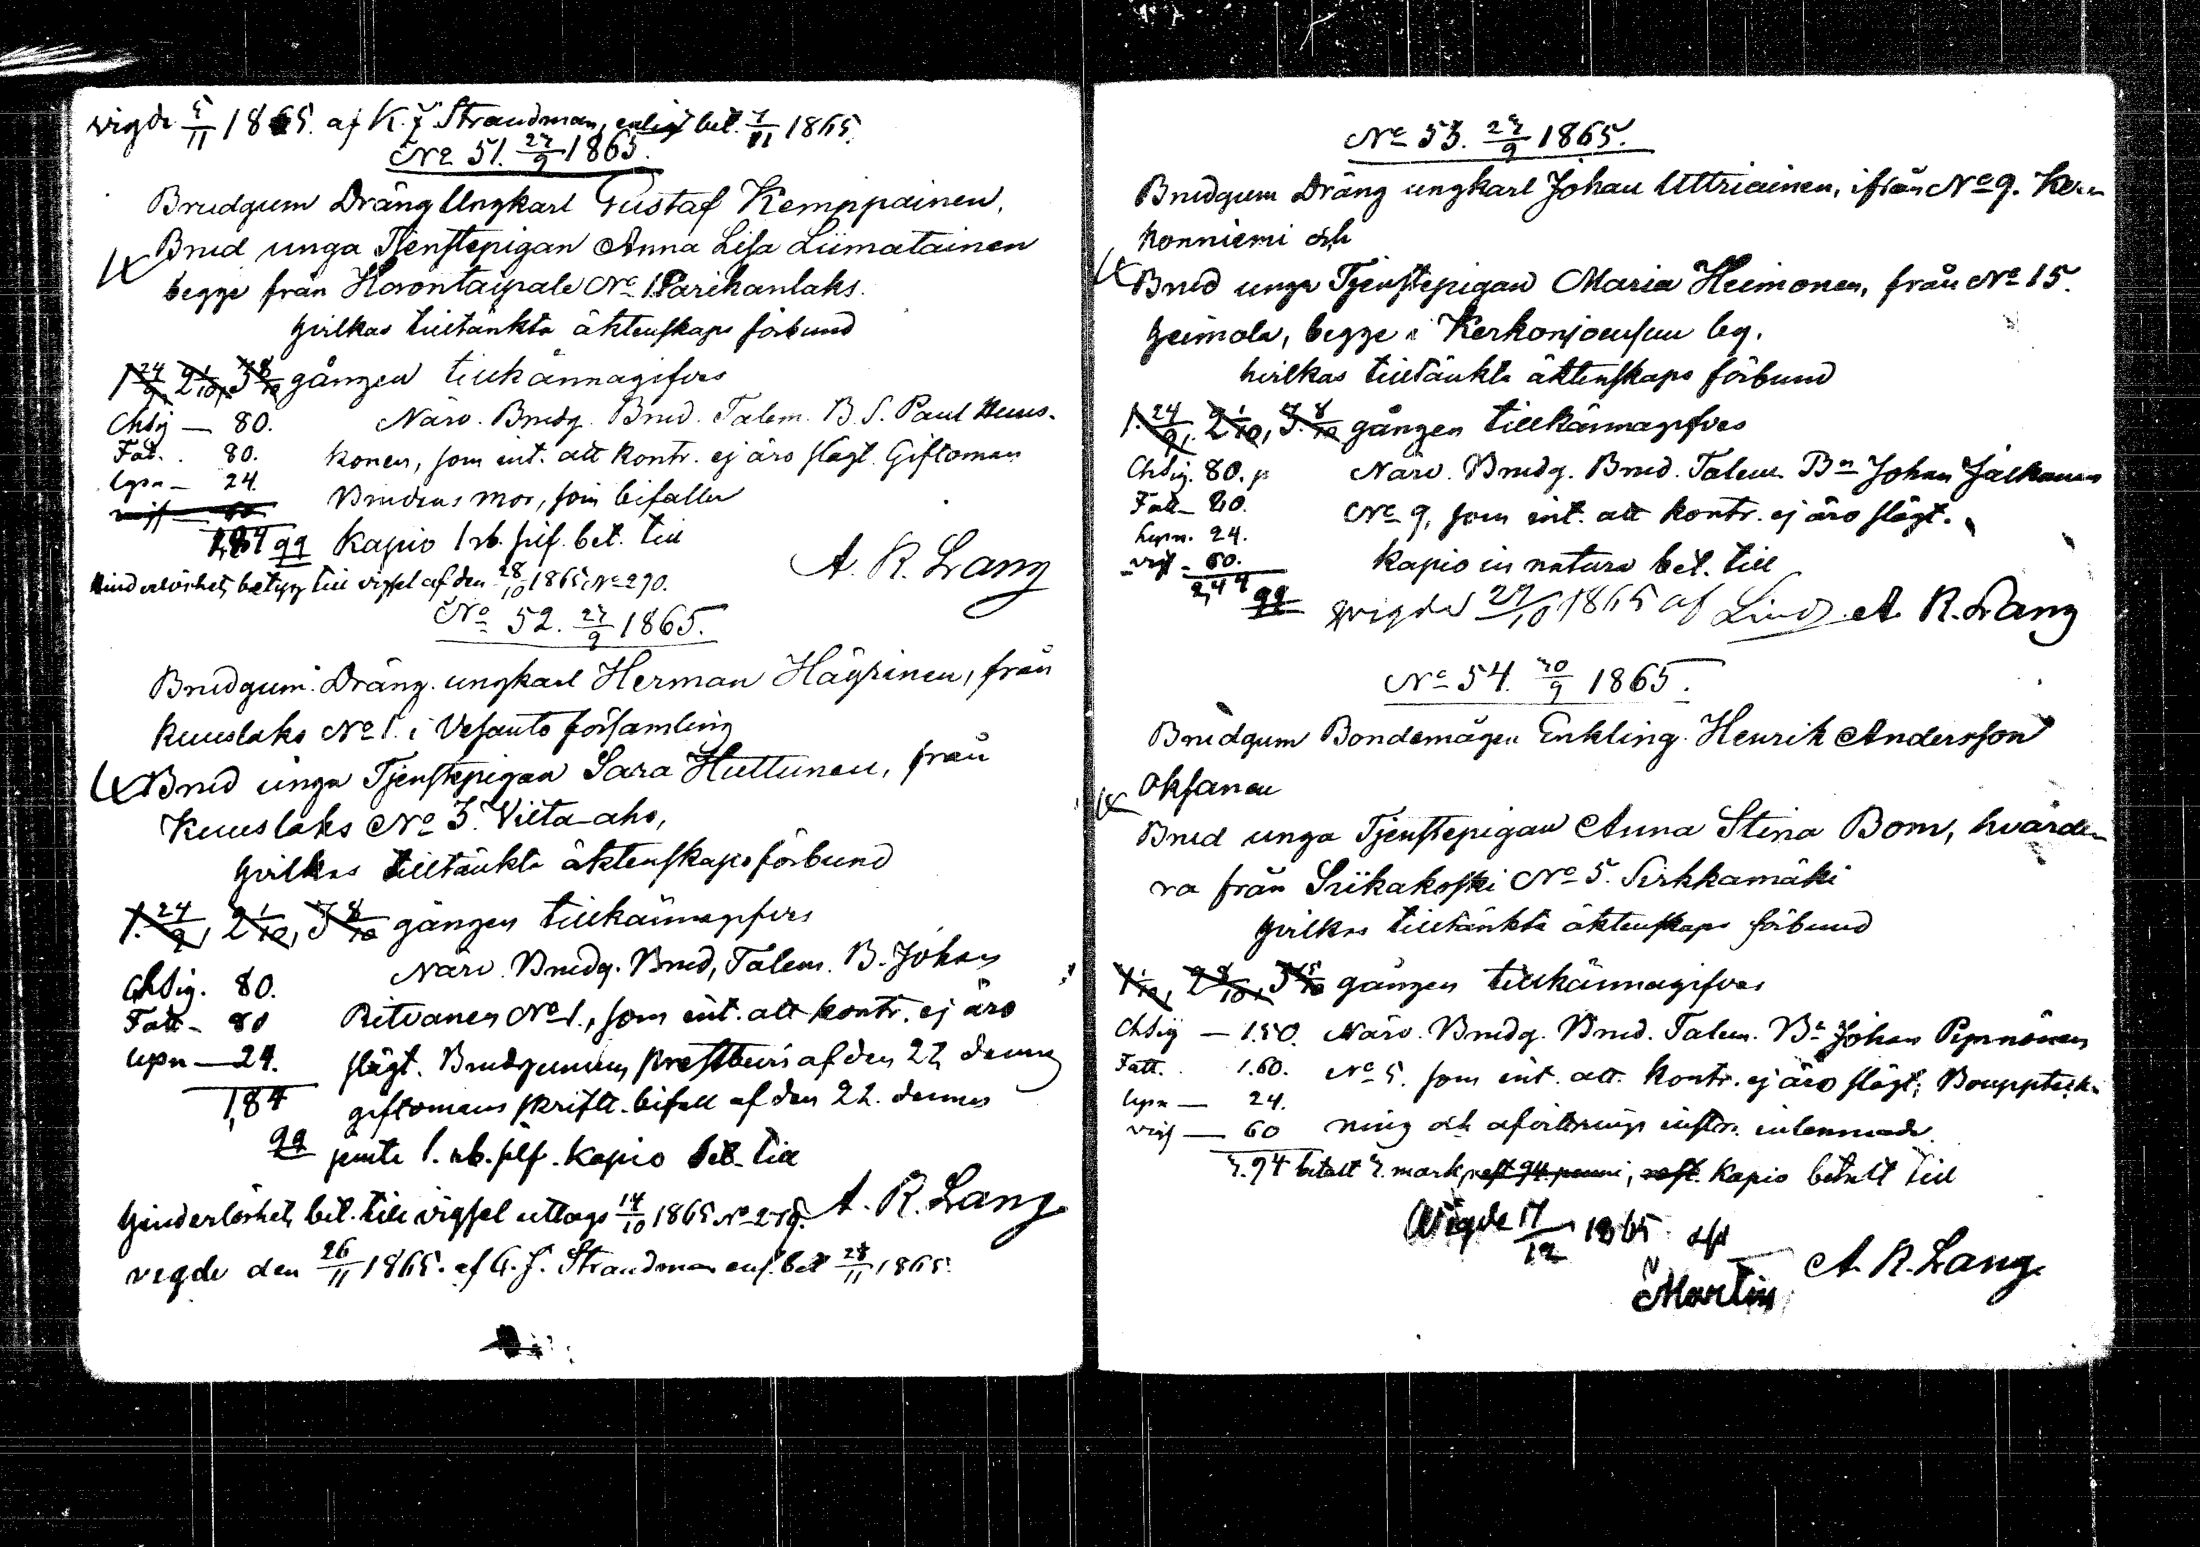 vigde 5/11 1865. af K. J Strandman, enligt bet. 7/11 1865.
No 51. 23/9 1865.
Brudgum Dräng Ungkarl Gustaf Kemppainen,
Brud unga Tjenstepigan Anna Lisa Liimatainen
begge från Horontaipale No 1 Parikanlaks.
hvilkas tilltänkta äktenskaps förbund
1 24/9, 2 1/10, 3 8/10 gången tillkännagifves
Närv. Brudg. Brud. Talem. B. S. Paul Huus-
Fat. . 80. konen, som int. att kontr. ej äro slägt. Giftoman
lspn — 24. Brudens mor, som bifaller
1,84 qq Kapio 1 rb. silf. bet. till
Hinderlöshets betyg till vigsel af den 28/10 1865 No 290.
A. R. Lang
No 52. 23/9 1865.
Brudgum. Dräng. ungkarl Herman Häyrinen, från
Kuuslaks No 1. i Vesanto församling
Brud unga Tjenstepigan Sara Huttunen, från
Kuuslaks No 3. Viita-aho,
hvilkas tilltänkta äktenskaps förbund
1. 24/9, 2 1/10, 3 8/10 gången tillkännagifves
Närv. Brudg. Brud, Talem. B. Johan
80.
Fatt - 80 Ritvanen No 1., som int. att kontr. ej äro
lspn — 24. slägt. Brudgummens prestbevis af den 22 dennes
1,84 giftomans skriftl. bifall af den 22. dennes
qq jemte 1. rb. silf. Kapio bet. till
Hinderlöshets bet. till vigsel uttags 14/10 1865 No 279. A. R. Lang
vigde den 26/11 1865. af G. J. Strandman enl. bet 28/11 1865.
No 53. 23/9 1865.
Brudgum Dräng ungkarl Johan Uttriainen, ifrån No 9. Ker-
konniemi och
Brud unga Tjenstepigan Maria Heimonen, från No 15.
Heimola, begge i Kerkonjoensuu beg.
hvilkas tilltänkta äktenskaps förbund
1. 24/9, 2 1/10, 3. 8/10 gången tillkännagifves
80. p Närv. Brudg. Brud. Talem. Bn Johan Jalkanen
Fatt — 80. No 9, som int. att kontr. ej äro slägt.
lspn. 24.
vigs - 60. Kapio in natura bet. till
2,44
qq vigde 29/10 1865 af Lind. A. R. Lang
No 54. 30/9 1865.
Brudgum Bondemågen Enkling. Henrik Andersson
Oksanen
Brud unga Tjenstepigan Anna Stina Bom, hvarde-
ra från Siikakoski No 5. Sirkkamäki
hvilkas tilltänkta äktenskaps förbund
1 1/10, 2 8/10, 3 15/10 gången tillkännagifves
1.50. Närv. Brudg. Brud. Talem. Bn Johan Pynnönen
Fatt. . 1.60. No 5. som int. att. kontr. ej äro slägt; Bouppteck-
lspn — 24.
vigs — 60 ning och afvittrings instr. inlemnade.
3.94 betalt 3. mark, rest 94. penni, rest. Kapio betalt till
Vigde 17/12 1865 af
Martin
A. R. Lang.